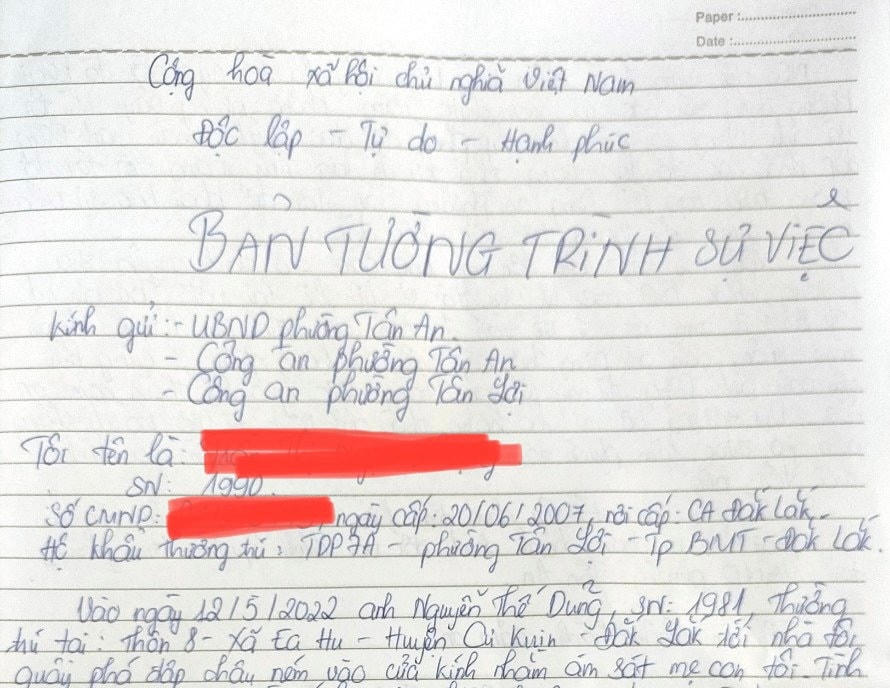 Paper :
Date :
Cộng hoà xã hội chủ nghĩa Việt Nam
Độc lập - Tự do - Hạnh phúc
BẢN TƯỜNG TRÌNH SỰ VIỆC
Kính gửi: - UBND phường Tân An.
- Công an phường Tân An
- Công an phường Tân Lợi
Tôi tên là:
SN: 1990.
Số CMND: , ngày cấp: 20/06/2007, nơi cấp: CA Đắk Lắk.
Hộ khẩu thường trú: TDP7A - phường Tân Lợi - Tp BMT - Đắk Lắk.
Vào ngày 12/5/2022 anh Nguyễn Thế Dũng, SN: 1981, thường
trú tại: Thôn 8 - xã Ea Hu - Huyện Cư Kuin - Đắk Lắk tới nhà tôi
quậy phá đập chậu ném vào cửa kính nhằm ám sát mẹ con tôi. Tình